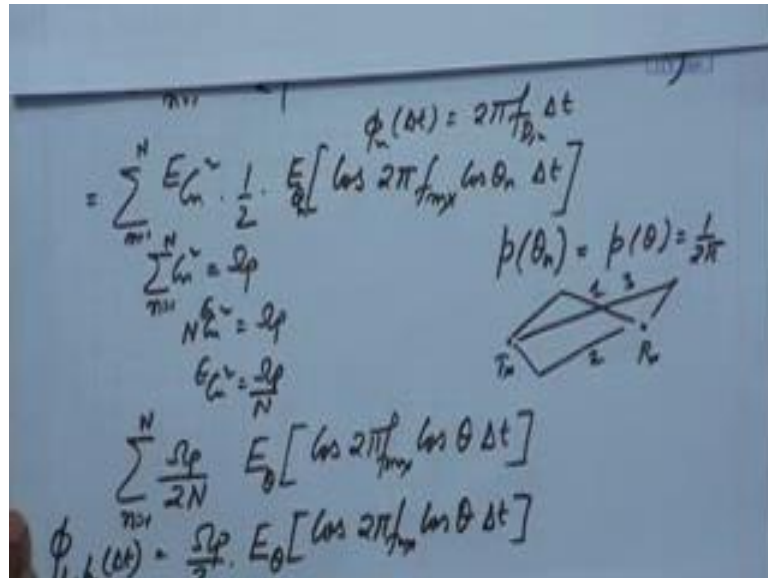 ϕ_n(Δt) = 2πf_{D,n} Δt
= \sum_{n=1}^{N} E C_n^2 · \frac{1}{2} · E_{θ_n} [ Cos 2πf_{max} Cos θ_n Δt ]
\sum_{n=1}^{N} C_n^2 = Ωp
p(θ_n) = p(θ) = \frac{1}{2π}
N E C_n^2 = Ωp
1 3
E C_n^2 = \frac{Ωp}{N}
Tx 2 Rx
\sum_{n=1}^{N} \frac{Ωp}{2N} E_θ [ Cos 2πf_{max} Cos θ Δt ]
ϕ (Δt) = \frac{Ωp}{2} · E_θ [ Cos 2πf_{max} Cos θ Δt ]